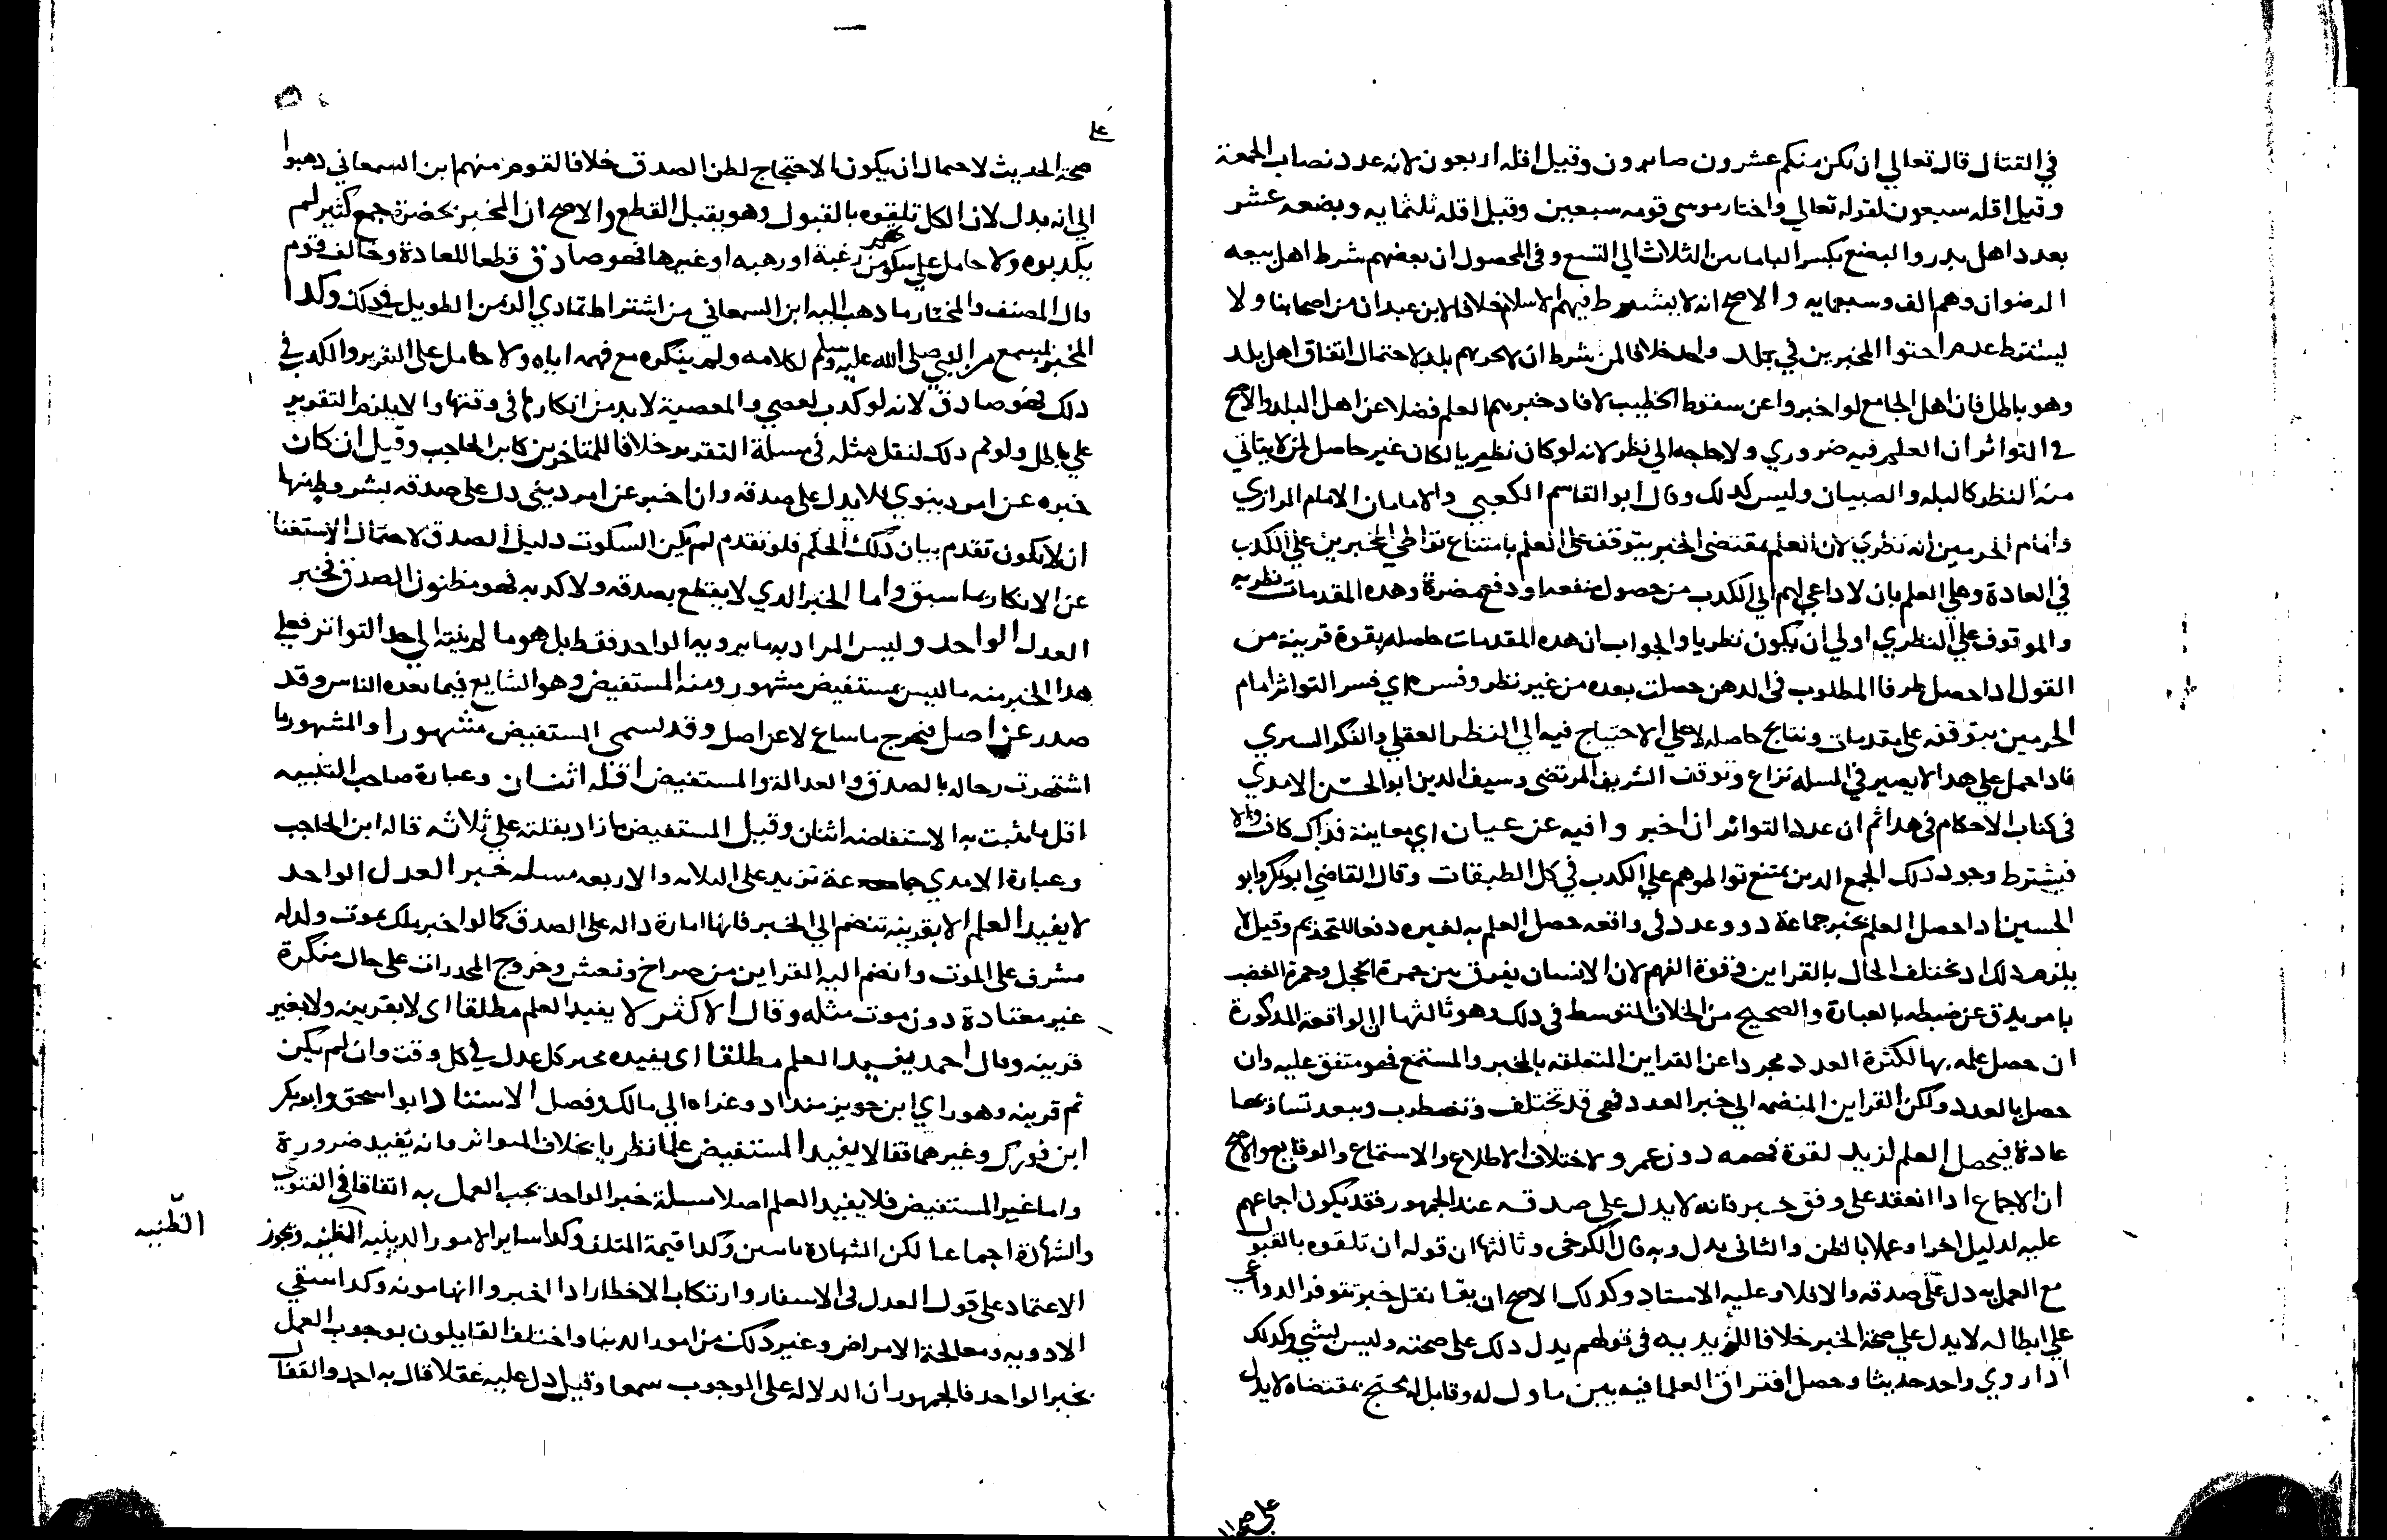 في القتال قال تعالي ان يكن منكم عشرون صابرون وقيل اقله اربعون لانه عدد نصاب الجمعة
وقيل اقله سبعون لقوله تعالي واختار موسى قومه سبعين وقيل اقله ثلثمايه وبضعه عشر
بعدد اهل بدر والبضع بكسر البا ما بين الثلاث الي التسع وفي المحصول ان بعضهم شرط اهل بيعه
الرضوان وهم الف وسبعمايه والاصح انه لا يشترط فيهم الاسلام خلافا لابن عبدان من اصحابنا ولا
يشترط عدم احتوا المخبرين في بلد واحد خلافا لمن شرط ان لا يحويهم بلد لاحتمال اتفاق اهل بلد
وهو باطل فان اهل الجامع لو اخبروا عن سقوط الخطيب لافاد خبرهم العلم فضلا عن اهل البلد والاصح
في التواتر ان العلم فيه ضروري ولا حاجه الي نظر لانه لو كان نظريا لكان غير حاصل لمن لا يتاتي
منه النظر كالبله والصبيان وليس كدلك وقال ابو القاسم الكعبي والامامان الامام الرازي
وامام الحرمين انه نظري لان العلم بمقتضى الخبر يتوقف على العلم بامتناع تواطي المخبرين علي الكدب
في العادة وعلي العلم بان لا داعي لهم الي الكدب من حصول منفعه او دفع مضرة وهده المقدمات نظريه
والموقوف علي النظري اولي ان يكون نظريا والجواب ان هده المقدمات حاصله بقوة قريبة من
القول ادا حصل طرفا المطلوب في الدهن حصلت بعده من غير نظر وفسره اي فسر التواتر امام
الحرمين بتوقفه على مقدمات ونتايج حاصله لا علي الاحتياج فيه الي النظر العقلي والفكر السبري
فادا حمل علي هدا لا يصير في المسله نزاع وتوقف الشريف المرتضى وسيف الدين ابو الحسن الامدي
في كتاب الاحكام في هدا ثم ان عدد التواتر ان اخبروا فيه عن عيان اي معاينة فداك كاف والا
فيشترط وجود دلك الجمع الدين يمتنع تواطوهم علي الكدب في كل الطبقات وقال القاضي ابو بكر وابو
الحسين ادا حصل العلم بخبر جماعة دوو عدد في واقعه حصل العلم به لغيره دفعا للتحكم وقيل لا
يلزم دلك اد تختلف الحال بالقراين في قوة الفهم لان الانسان يفرق بين حمرة الخجل وحمرة الغضب
بامر يدق عن ضبطه بالعبارة والصحيح من الخلاف المتوسط في دلك وهو ثالثها ان الواقعة المدكورة
ان حصل علمه بها لكثرة العدد مجردا عن القراين المتعلقه بالخبر والمستمع فهو متفق عليه وان
حصل بالعدد ولكن القراين المنضمه الي خبر العدد فهى قد تختلف وتضطرب ويبعد تساويها
عادة فيحصل العلم لزيد لقوة فهمه دون عمرو لاختلاف الاطلاع والاستماع والوقايع والاصح
ان الاجماع ادا انعقد على وفق خبر فانه لا يدل علي صدقه عند الجمهور فقد يكون اجماعهم
عليه لدليل اخر او عملا بالظن والثاني يدل وبه قال الكرخى وثالثها ان قوله ان تلقوه بالقبول
مع العمل به دل على صدقه والا فلا وعليه الاستاد وكدلك الاصح ان بقا نقل خبر تتوفر الدواعي
علي ابطاله لا يدل علي صحة الخبر خلافا للزيديه في قولهم يدل دلك على صحته وليس بشي وكدلك
ادا روي واحد حديثا وحصل افتراق العلما فيه بين ماول له وقابل له محتج بمقتضاه لا يدل
علي
صحة الحديث لاحتمال ان يكون الاحتجاج لظن الصدق خلافا لقوم منهم ابن السمعاني دهبوا
الي انه يدل لان الكل تلقوه بالقبول وهو يقبل القطع والاصح ان المخبر بحضرة جمع كثير لم
يكدبوه ولا حامل علي سكوتهم من رغبة او رهبه او غيرها فهو صادق قطعا للعادة وخالف قوم
قال المصنف والمختار ما دهب اليه ابن السمعاني من اشتراط تمادي الزمن الطويل في دلك وكدا
المخبر بمسمع من النبي صلى الله عليه وسلم لكلامه ولم ينكره مع فهمه اياه ولا حامل على التقرير والكدب في
دلك فهو صادق لانه لو كدب لعصي والمعصية لا بد من انكارها في وقتها والا يلزم التقرير
علي باطل ولو تم دلك لنقل مثله في مسلة التقرير خلافا للمتاخرين كابن الحاجب وقيل ان كان
خبره عن امر دينوي فلا يدل علي صدقه وان اخبر عن امر ديني دل على صدقه بشروط منها
ان لا يكون تقدم بيان دلك الحكم فلو تقدم لم يكن السكوت دليل الصدق لاحتمال الاستغنا
عن الانكار بما سبق واما الخبر الدي لا يقطع بصدقه ولا كدبه فهو مظنون الصدق فخبر
العدل الواحد وليس المراد به ما يرويه الواحد فقط بل هو ما لم ينته الي حد التواتر فعلي
هدا الخبر منه ما ليس بمستفيض مشهور ومنه المستفيض وهو الشايع فيما بعده الناس وقد
صدر عن اصل فيخرج ما شاع لا عن اصل وقد يسمى المستفيض مشهورا والمشهور ما
اشتهرت رجاله بالصدق والعدالة والمستفيض اقله اثنان وعبارة صاحب التنبيه
اقل ما يثبت به الاستفاضه اثنان وقيل المستفيض ما زاد نقلته علي ثلاثه قاله ابن الحاجب
وعبارة الامدي جماعة تزيد على الثلاثه والاربعه مسله خبر العدل الواحد
لا يفيد العلم الا بقرينه تنضم الي الخبر فانها امارة داله على الصدق كما لو اخبر ملك بموت ولد له
مشرف على الموت وانضم اليه القراين من صراخ ونعش وخروج المخدرات علي حال منكرة
غير معتادة دون موت مثله وقال الاكثر لا يفيد العلم مطلقا اى لا بقرينه ولا بغير
قرينه وقال احمد يفيد العلم مطلقا اى يفيده خبر كل عدل في كل وقت وان لم يكن
ثم قرينه وهو راي ابن خويز منداد وعزاه الي مالك وفصل الاستاد ابو اسحق وابو بكر
ابن فورك وغيرهما فقالا يفيد المستفيض علما نظريا بخلاف المتواتر فانه يفيد ضرورة
واما غير المستفيض فلا يفيد العلم اصلا مسلة خبر الواحد يجب العمل به اتفاقا في الفتوي
والشهادة اجماعا لكن الشهادة باثنين وكدا قيمة المتلف وكدا ساير الامور الدينيه الظنيه ويجوز
الظنيه
الاعتماد على قول العدل في الاسفار وارتكاب الاخطار ادا اخبروا انها مامونه وكدا سقي
الادويه ومعالجة الامراض وغير دلك من امور الدنيا واختلف القايلون بوجوب العمل
بخبر الواحد فالجمهور ان الدلاله على الوجوب سمعا وقيل دل عليه عقلا قال به احمد والقفال